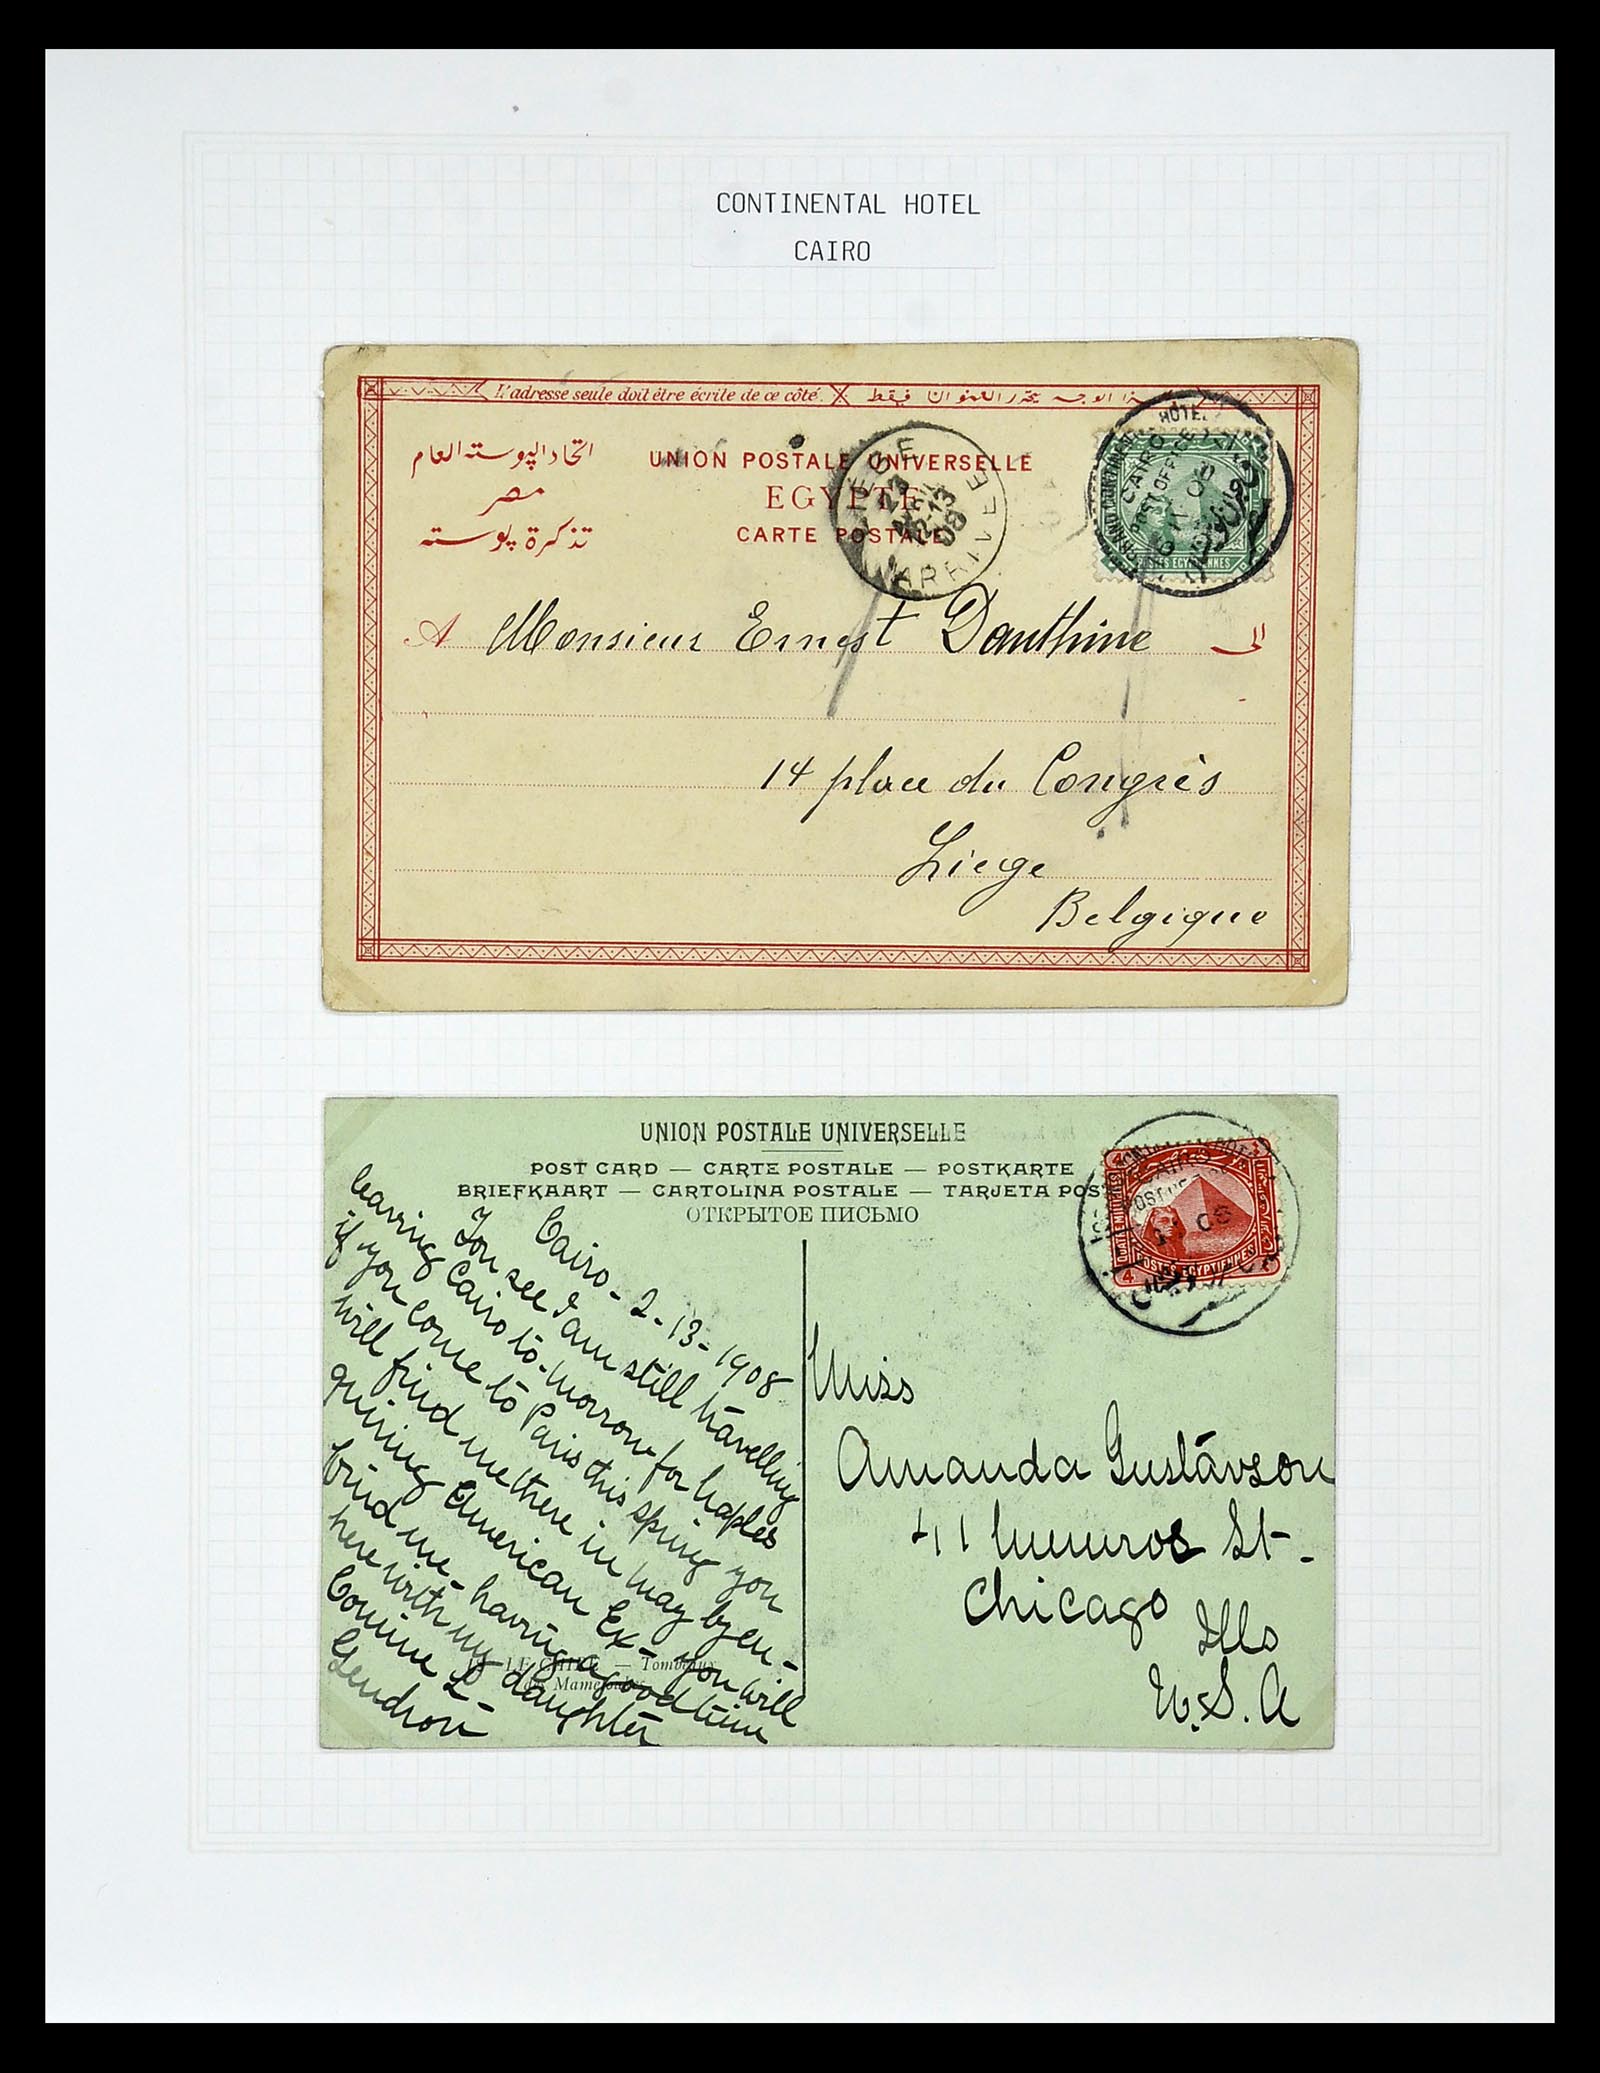 CONTINENTAL HOTEL
CAIRO
L'adresse seule doit être écrite de ce côté.
هذا الوجه يحرر العنوان فيقط
اتحاد البوسته العام
مصر
تذكرة بوسته
UNION POSTALE UNIVERSELLE
EGYPTE
CARTE POSTALE
LIEGE
23
12-13
08
ARRIVEE
HOTEL
CAIRO
POST OFFICE
A Monsieur Ernest Danthine الى
14 place du Congrès
Liege
Belgique
UNION POSTALE UNIVERSELLE
POST CARD — CARTE POSTALE — POSTKARTE
BRIEFKAART — CARTOLINA POSTALE — TARJETA POS
ОТКРЫТОЕ ПИСЬМО
CAIRO
08
POSTES EGYPTIENNES
4
Cairo - 2-13-1908
You see I am still travelling
leaving Cairo to-morrow for Naples
if you come to Paris this spring you
will find me there in May by en-
quiring American Ex- you will
find me - having a good time
here with my daughter
Gendron
LE CAIRE — Tombeaux
des Mamelouks
Miss
Amanda Gustavson
St-
Chicago Ills
U.S.A